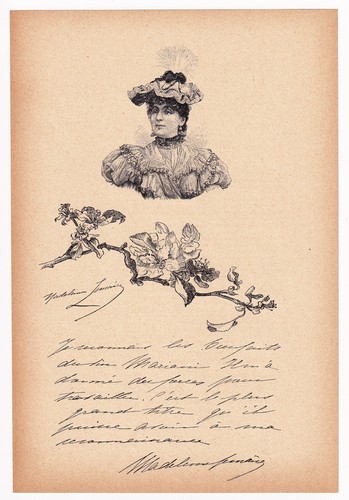 Madeleine Lemaire
Je reconnais les bienfaits
du vin Mariani. Il m'a
donné des forces pour
travailler. C'est le plus
grand titre qu'il
puisse avoir à ma
reconnaissance
Madeleine Lemaire